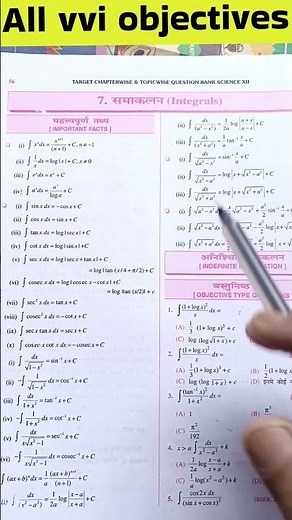 All vvi objectives
56 TARGET CHAPTERWISE & TOPICWISE QUESTION BANK SCIENCE XII
7. समाकलन (Integrals)
महत्त्वपूर्ण तथ्य
[IMPORTANT FACTS]
(i) ∫ xⁿdx = xⁿ⁺¹/(n+1) + C, n ≠ -1
(ii) ∫ 1/x dx = log|x| + C, x ≠ 0
(iii) ∫ eˣdx = eˣ + C
(iv) ∫ aˣdx = aˣ/log a + C
(i) ∫ sin x dx = -cos x + C
(ii) ∫ cos x dx = sin x + C
(iii) ∫ tan x dx = log|sec x| + C
(iv) ∫ cot x dx = log|sin x| + C
(v) ∫ sec x dx = log|sec x + tan x| + C
= log|tan (x/4 + π/2) + C
(vi) ∫ cosec x dx = log|cosec x - cot x| + C
= log|tan (x/2)| + c
(vii) ∫ sec² x dx = tan x + C
(viii) ∫ cosec² x dx = -cot x + C
(ix) ∫ sec x tan x dx = sec x + C
(x) ∫ cosec x cot x dx = -cosec x + C
(i) ∫ dx/√(1-x²) = sin⁻¹ x + C
(ii) -∫ 1/√(1-x²) dx = cos⁻¹ x + C
(iii) ∫ dx/(1+x²) = tan⁻¹ x + C
(iv) -∫ 1/(1+x²) dx = cot⁻¹ x + C
(v) ∫ dx/(x√(x²-1)) = sec⁻¹ x + C
(vi) -∫ 1/(x√(x²-1)) dx = cosec⁻¹ x + C
∫ (ax+b)ⁿdx = 1/a (ax+b)ⁿ⁺¹/(n+1) + C
(i) ∫ dx/(x²-a²) = 1/2a log|(x-a)/(x+a)| + C
(ii) ∫ dx/(a²-x²) = 1/2a log|(a+x)/(a-x)| + C
(iii) ∫ dx/(x²+a²) = 1/a tan⁻¹ x/a + C
(i) ∫ dx/√(a²-x²) = sin⁻¹ x/a + C
(ii) ∫ dx/√(x²-a²) = log|x + √(x²-a²)| + C
(iii) ∫ dx/√(x²+a²) = log|x + √(x²+a²)| + C
(i) ∫ √(a²-x²)
(ii) ∫ √(x²-a²) dx
(iii) ∫ √(x²+a²) dx
[INDEFINITE
वस्तुनिष्ठ
[OBJECTIVE TYPE
1. ∫ (1+log x)²/x dx =
(A) 1/3 (1+log x)³ + c
(C) log (log √(1+x)) + c
2. ∫ (1+log x)²/x dx =
(A) 1/3 (1+log x)³ + C (B)
(C) log (log (1+x)) + c (D) इनमें कोई
3. ∫ (tan⁻¹ x)²/(1+x²) dx =
(A) 1 (B)
(C) π²/192 (D)
4. x > a ∫ dx/(x²-a²) + k
(A) 1/2a log (x-a)/(x+a) + k (B)
(C) 1/a log(x²-a²) + k (D)
5. ∫ cos2x dx/(sin x + cos x)²